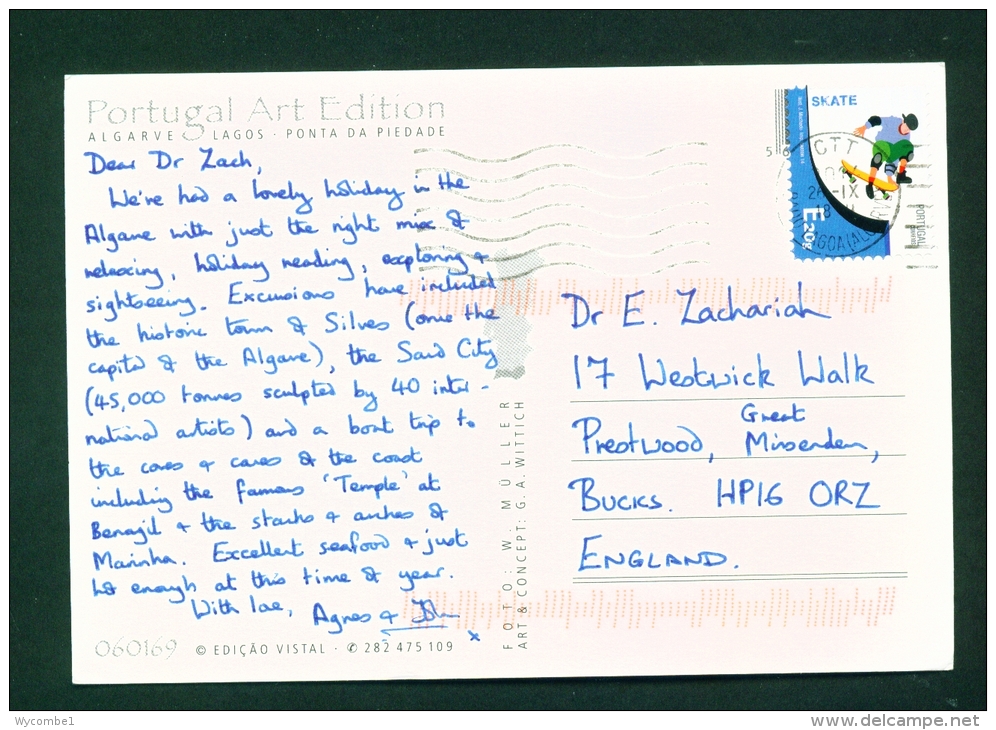 Portugal Art Edition
ALGARVE · LAGOS · PONTA DA PIEDADE
Dear Dr Zach,
We've had a lovely holiday in the
Algarve with just the right mix of
relaxing, holiday reading, exploring +
sightseeing. Excursions have included
the historic town of Silves (once the
capital of the Algarve), the Sand City
(45,000 tonnes sculpted by 40 inter-
national artists) and a boat trip to
the coves + caves of the coast
including the famous 'Temple' at
Benagil + the stacks + arches of
Marinha. Excellent seafood + just
hot enough at this time of year.
With love, Agnes + John
x
060169 © EDIÇÃO VISTAL · ✆ 282 475 109
FOTO: W. MÜLLER
ART & CONCEPT: G.A.WITTICH
SKATE
E20g
PORTUGAL
CTT
IX
18
Dr E. Zachariah
17 Westwick Walk
Great
Prestwood, Missenden,
BUCKS. HP16 0RZ
ENGLAND.
Wycombe1
www.delcampe.net